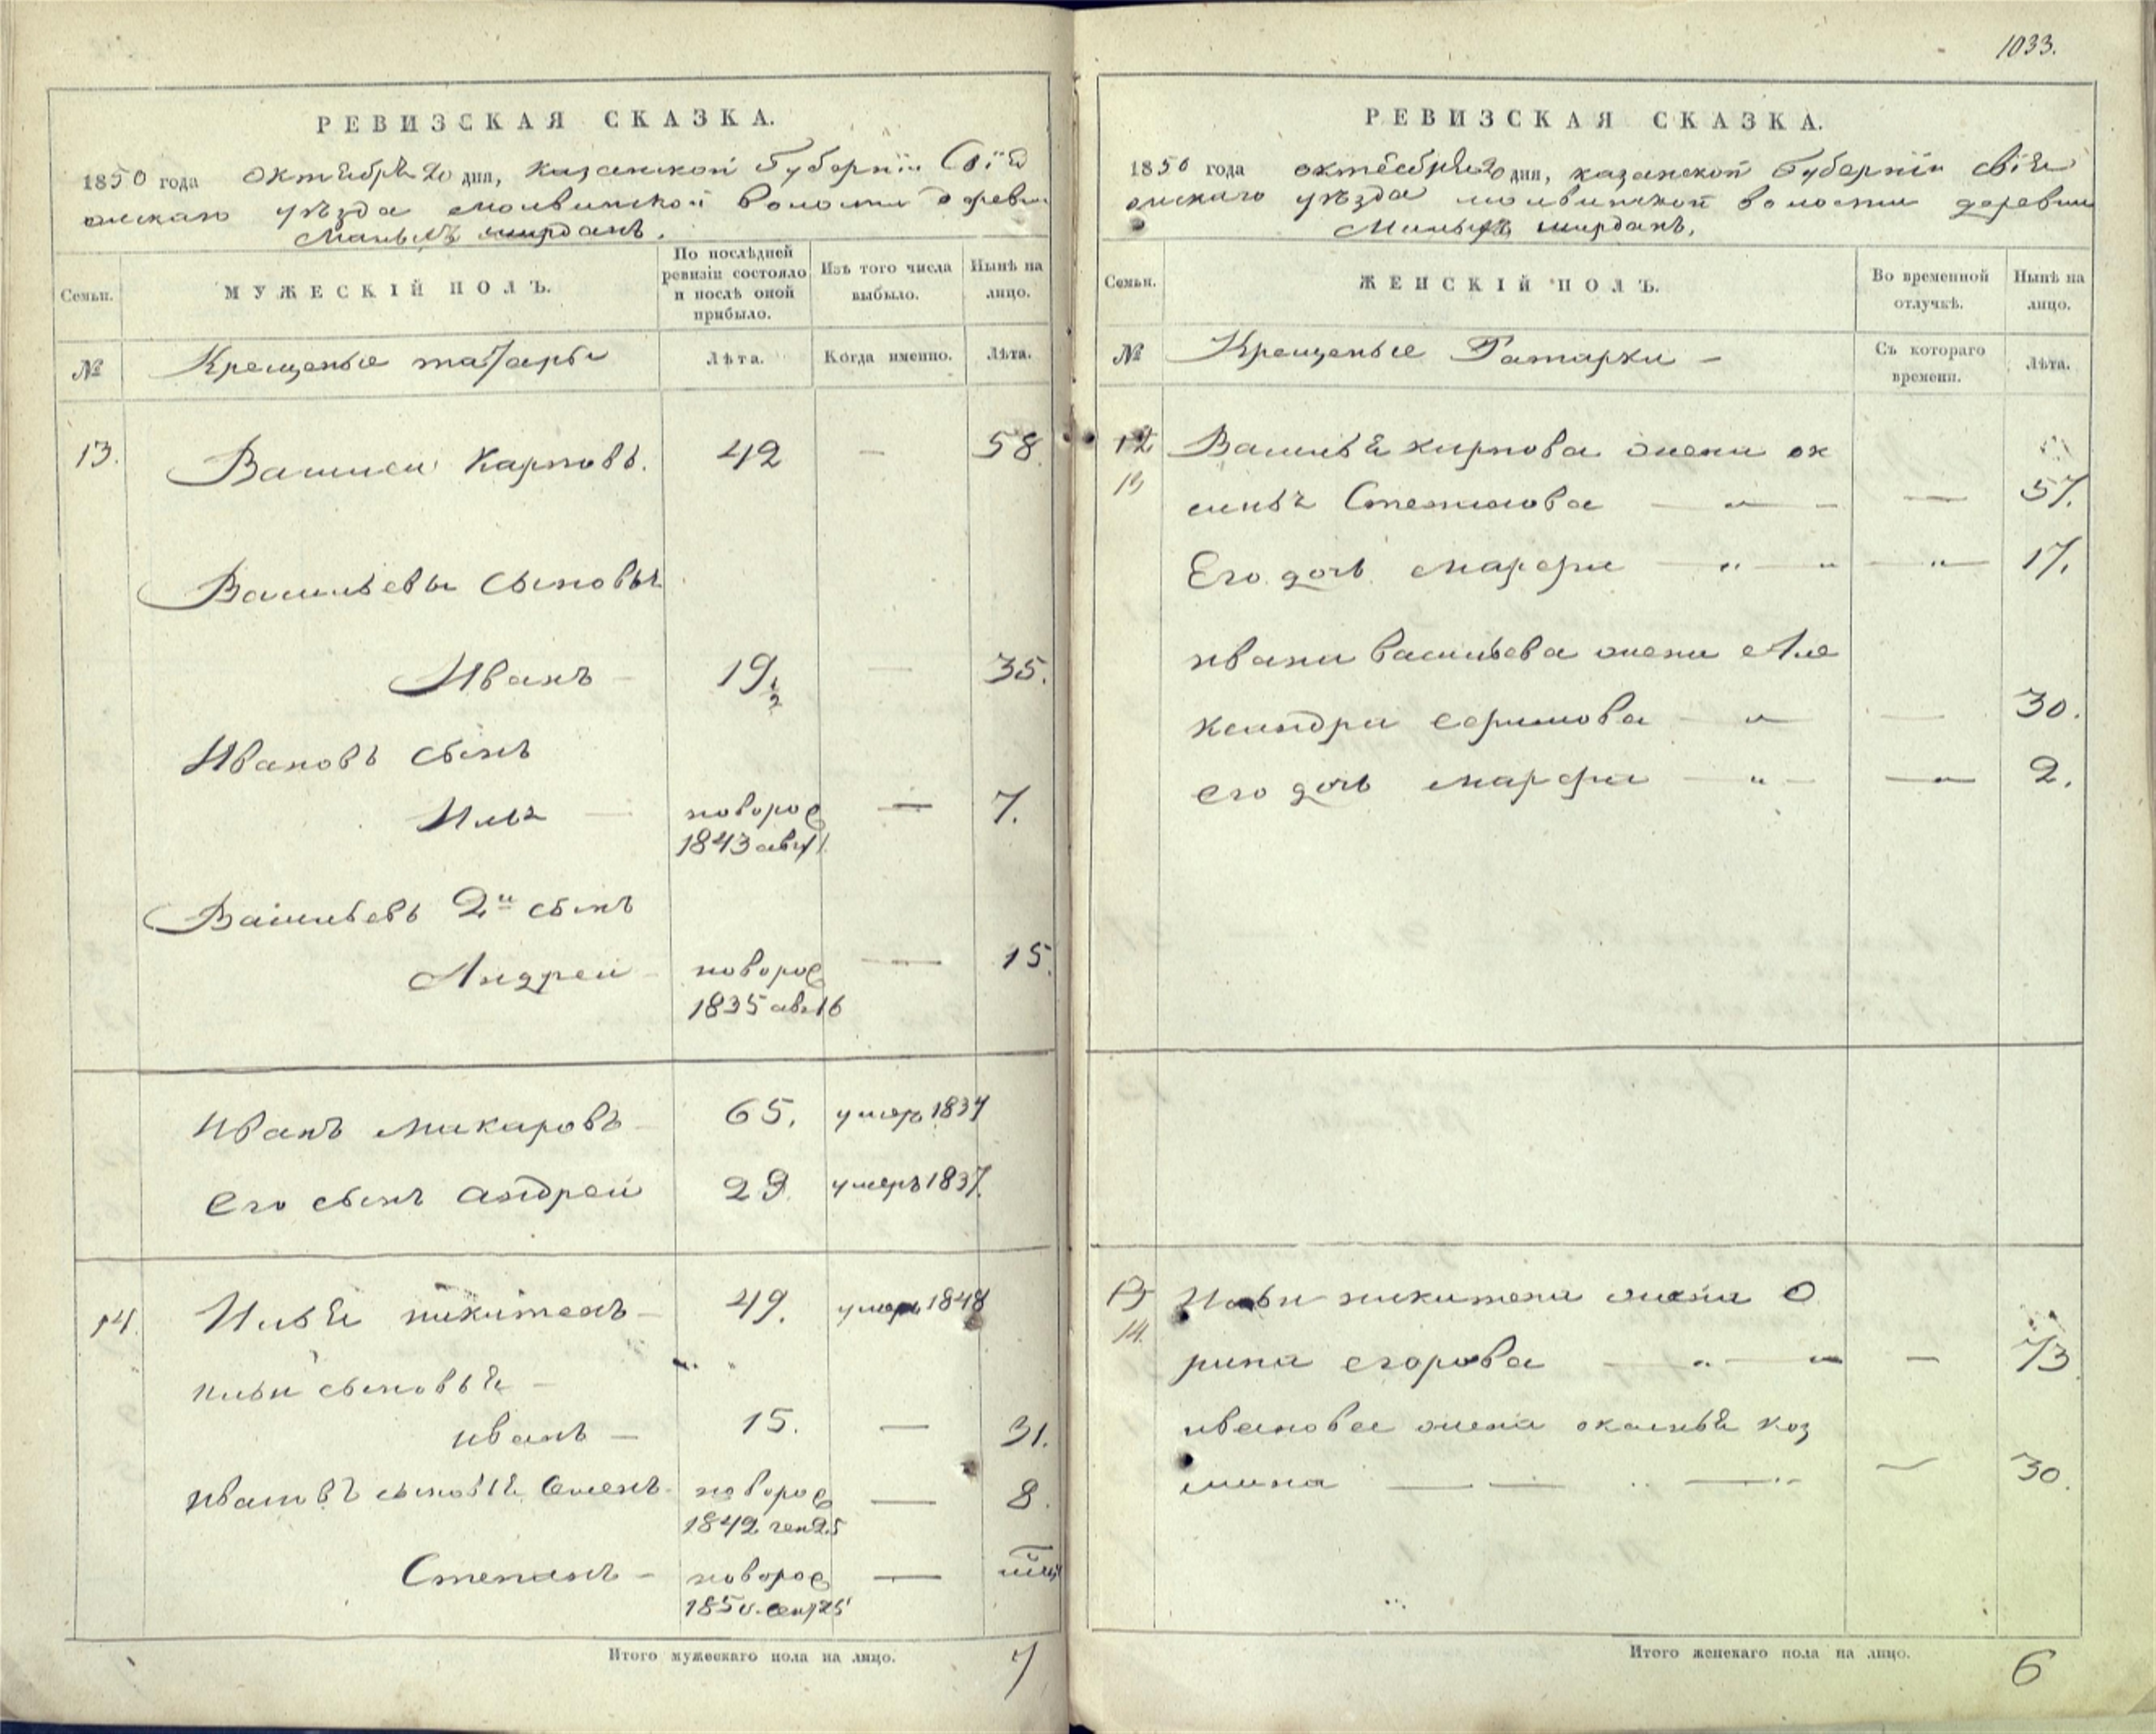 РЕВИЗСКАЯ СКАЗКА.
1850 года октября 20 дня, казанской Губернии Свія
жскаго уѣзда молвинской волости деревни
Малыхъ ширданъ.
Семьи.
МУЖЕСКІЙ ПОЛЪ.
По послѣдней ревизіи состояло и послѣ оной прибыло.
Изъ того числа выбыло.
Нынѣ на лицо.
№ Крещеные татары Лѣта. Когда именно. Лѣта.
13. Василеи Карповъ. 42 — 58.
Васильевы сыновья
Иванъ — 19½ — 35.
Ивановъ сынъ
Илья — новорож — 7.
1843 авг 1
Васильевъ 2й сынъ
Андреи — новорож — 15.
1835 авг 16
Иванъ макаровъ — 65. умеръ 1837
Его сынъ андреи 29. умеръ 1837.
14. Илья никитенъ — 49. умеръ 1848
ильи сыновья —
иванъ — 15. — 31.
ивановъ сыновья Семенъ новорож — 8.
1842 ген 25
Степанъ — новорож —
1850. сент 25
Итого мужескаго пола на лицо. 7
1033.
РЕВИЗСКАЯ СКАЗКА.
1850 года октября 20 дня, казанской Губерніи свія
жскаго уѣзда молвинской волости деревни
Малыхъ ширданъ.
Семьи.
ЖЕНСКІЙ ПОЛЪ.
Во временной отлучкѣ.
Нынѣ на лицо.
№ Крещеные Татарки — Съ котораго времени. Лѣта.
12 Василья карпова жена ок
13 синья Степанова — „ — — 57.
Его дочь марфа — „ — „ — „ — 17.
ивана васильева жена Але
ксандра ефимова — „ — 30.
его дочь марфа — „ — — 2.
13 Ильи никитена жена О
14. рина егорова — „ — „ — 73
иванова жена оксинья коз
мина — — „ — „ — 30.
Итого женскаго пола на лицо. 6